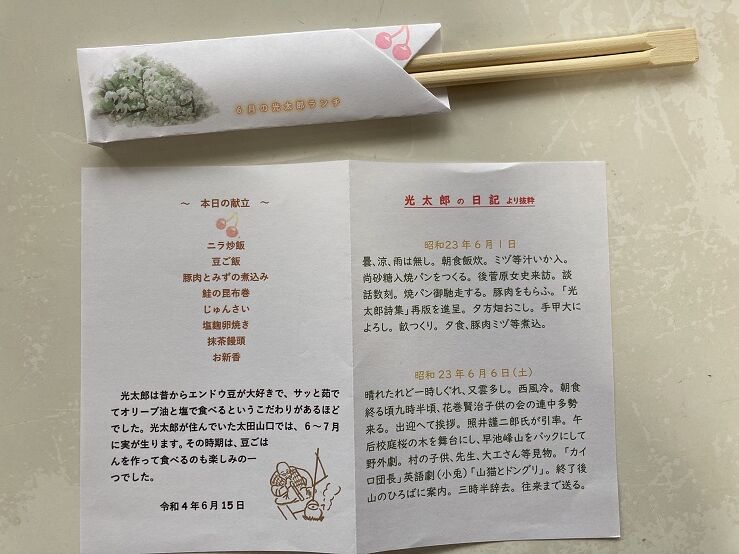 6月の光太郎ランチ
～ 本日の献立 ～
ニラ炒飯
豆ご飯
豚肉とみずの煮込み
鮭の昆布巻
じゅんさい
塩麹卵焼き
抹茶饅頭
お新香
光太郎は昔からエンドウ豆が大好きで、サッと茹で
てオリーブ油と塩で食べるというこだわりがあるほど
でした。光太郎が住んでいた太田山口では、6～7月
に実が生ります。その時期は、豆ごは
んを作って食べるのも楽しみの一
つでした。
令和4年6月15日
光太郎の日記より抜粋
昭和23年6月1日
曇、涼、雨は無し。朝食飯炊。ミヅ等汁いか入。
尚砂糖入焼パンをつくる。後菅原女史来訪。談
話数刻。焼パン御馳走する。豚肉をもらふ。「光
太郎詩集」再版を進呈。夕方畑おこし。手甲大に
よろし。畝つくり。夕食、豚肉ミヅ等煮込。
昭和23年6月6日(土)
晴れたれど一時しぐれ、又雲多し。西風冷。朝食
終る頃九時半頃、花巻賢治子供の会の連中多勢
来る。出迎へて挨拶。照井謹二郎氏が引率。午
后校庭桜の木を舞台にし、早池峰山をバックにして
野外劇。村の子供、先生、大工さん等見物。「カイ
ロ団長」英語劇(小兎)「山猫とドングリ」。終了後
山のひろばに案内。三時半辞去。往来まで送る。